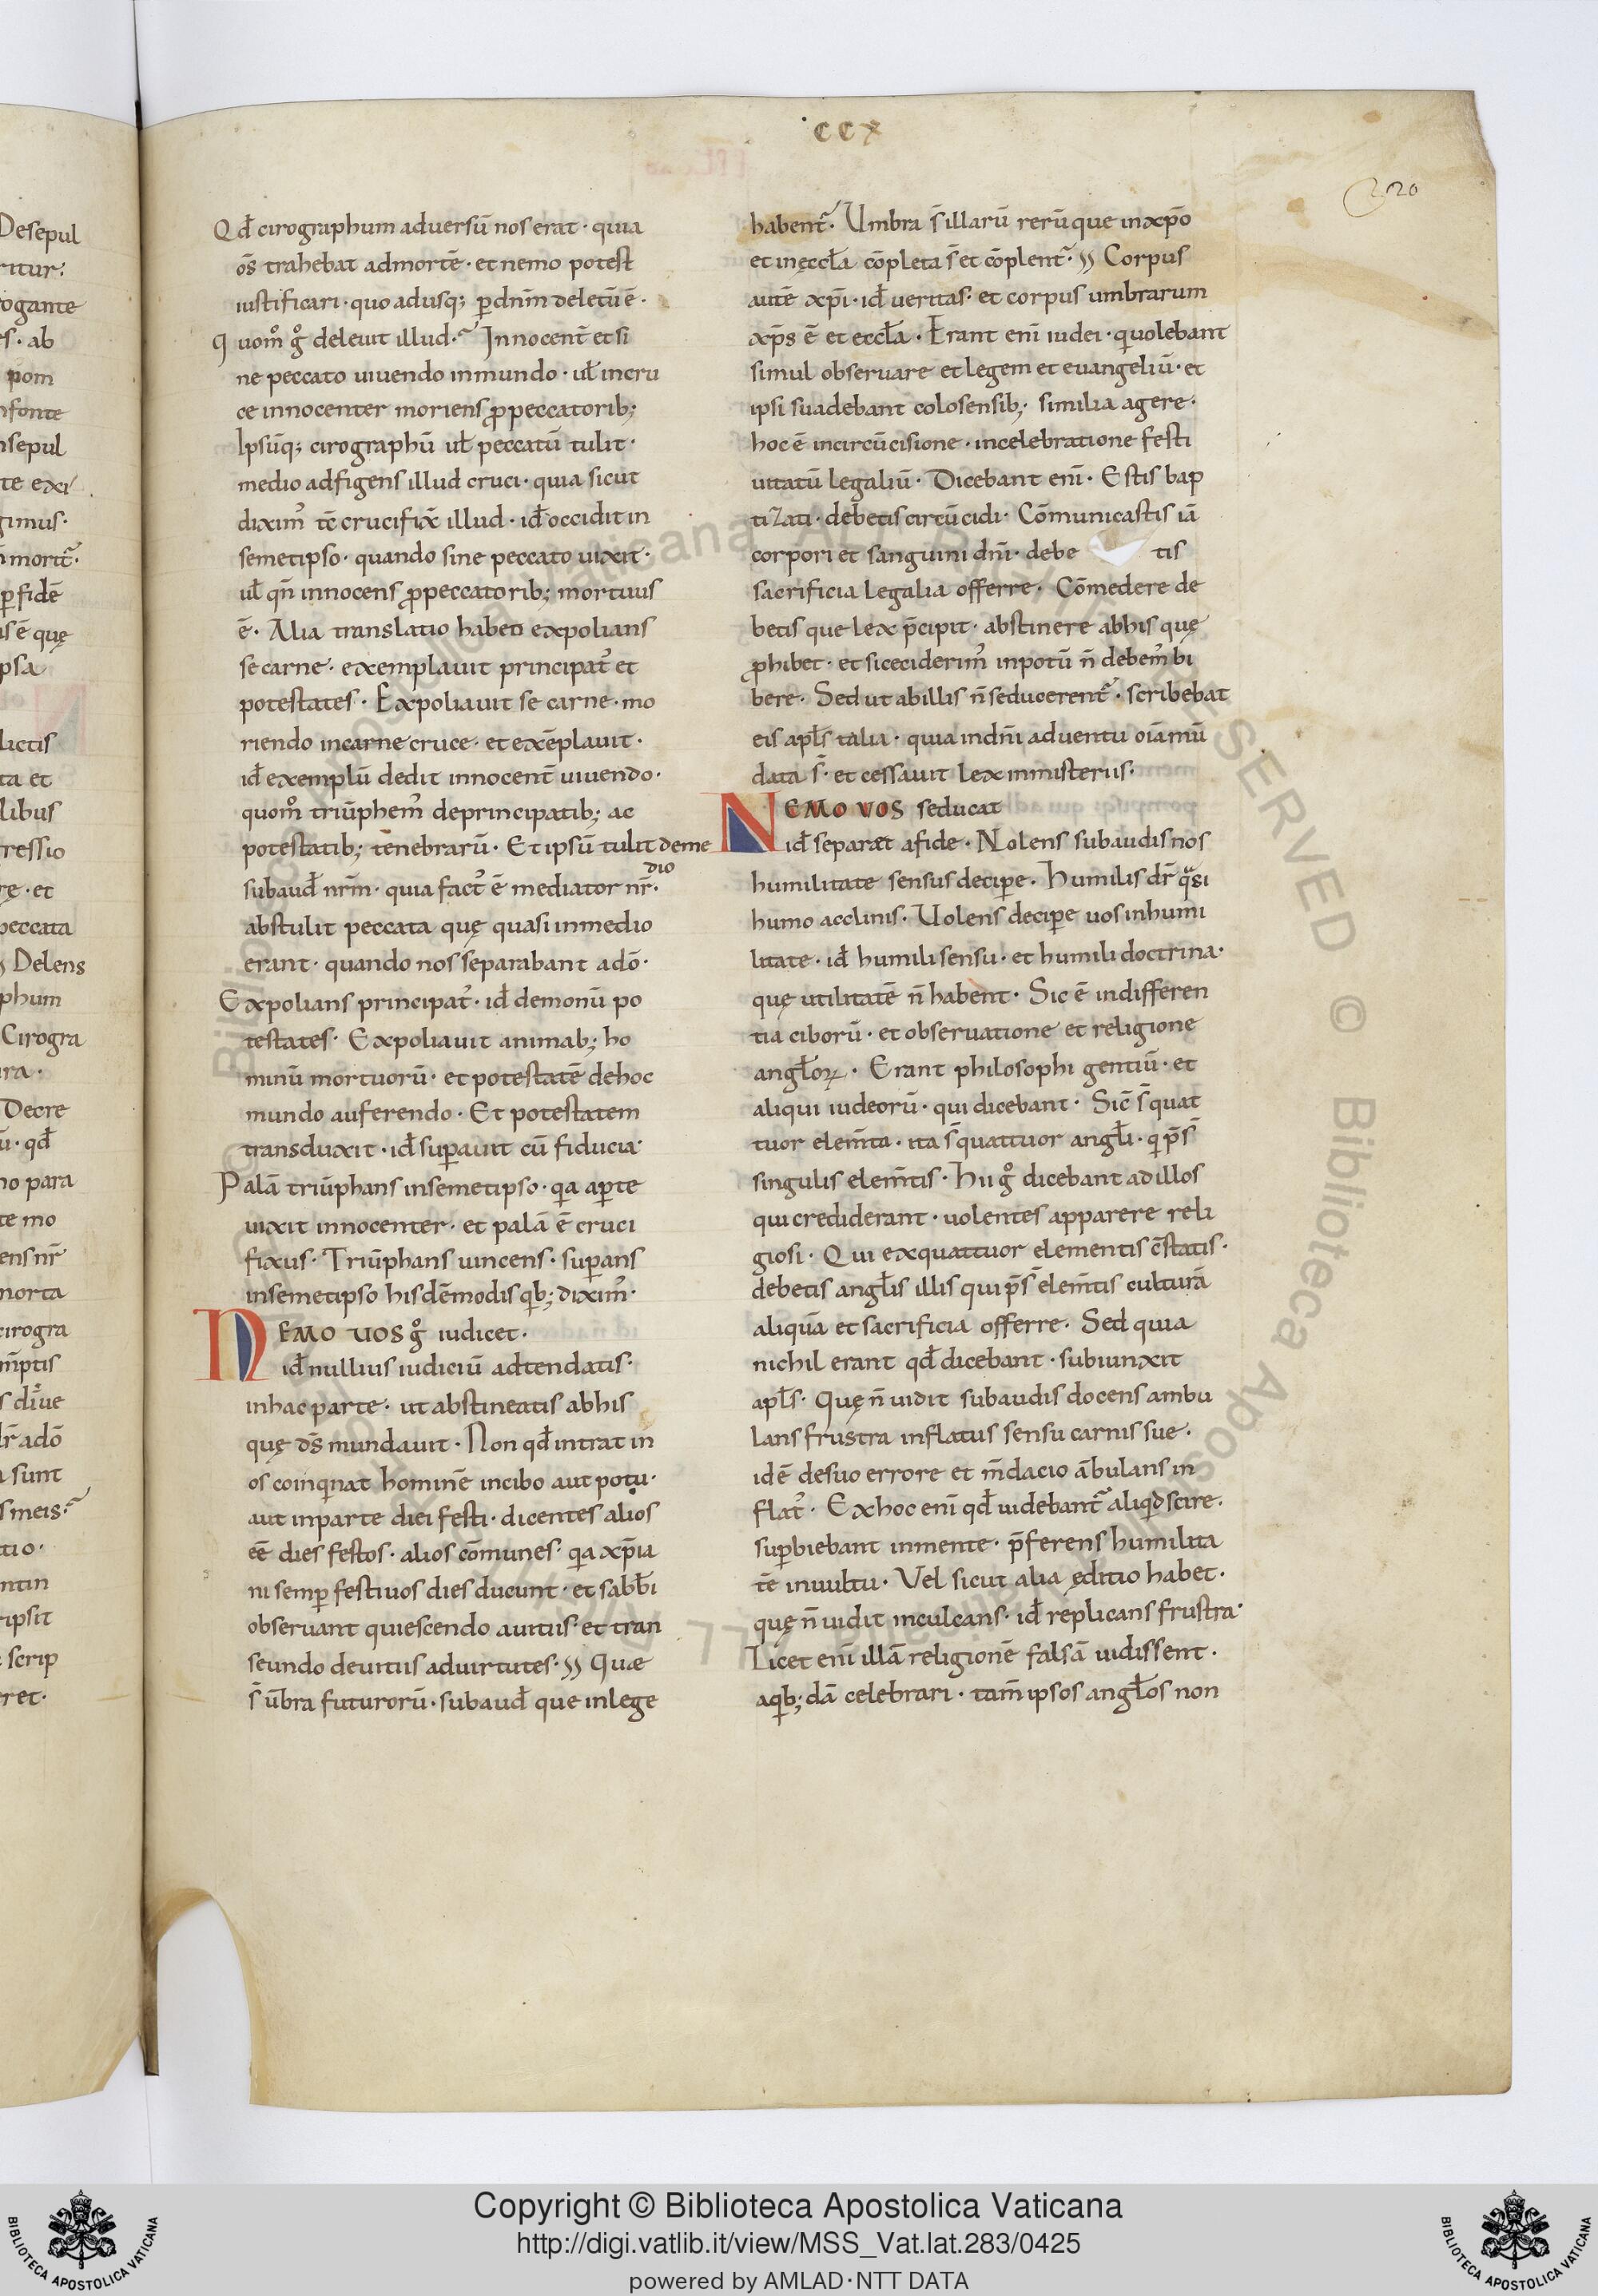 CCX
220
Qđ cirographum adversū nos erat · quia
os̄ trahebat admortē · et nemo potest
iustificari · quo adusq; ꝑdnm̄ deletū ē ·
q uom̊ g̊ delevit illud · Innocent̄ et si
ne peccato uiuendo inmundo · ul̄ incru
ce innocenter moriens ꝓpeccatorib;
Ipsūq; cirographū ul̄ peccatū tulit ·
medio adfigens illud cruci · quia sicut
dixim᾽ tc̄ crucifix̄ illud · id̄ occidit in
semetipso · quando sine peccato uixit ·
ul̄ qn̄ innocens ꝓpeccatorib; mortuus
ē · Alia translatio habet expolians
se carne · exemplauit principat᾽ et
potestates · Expoliauit se carne · mo
riendo incarne cruce · et exēplauit ·
id̄ exemplū dedit innocent̄ uiuendo ·
quom̊ triūphem᾽ deprincipatib; ac
potestatib; tenebrarū · Et ipsū tulit deme
dio
subaud̄ nrm̄ · quia fact᾽ ē mediator nr̄ ·
abstulit peccata quę quasi inmedio
erant · quando nos separabant adō ·
Expolians principat᾽ · id̄ demonū po
testates · Expoliauit animab; ho
minū mortuorū · et potestatē dehoc
mundo auferendo · Et potestatem
transduxit · id̄ suꝑauit cū fiducia ·
Palā triūphans insemetipso · qa aꝑte
uixit innocenter · et palā ē cruci
fixus · Triūphans uincens · suꝑans
insemetipso hisdē modis qb; dixim᾽ ·
NEMO UOS g̊ iudicet ·
id̄ nullius iudiciū adtendatis ·
inhac parte · ut abstineatis abhis
quę ds̄ mundauit · Non qđ intrat in
os coinqnat hominē incibo aut potu ·
aut inparte diei festi · dicentes alios
eē dies festos · alios cōmunes · qa xp̄ia
ni semꝑ festiuos dies ducunt · et sabb̄i
obseruant quiescendo auitiis · et tran
seundo deuitiis aduirtutes · Quæ
s̄ ūbra futurorū · subaud̄ que inlege
habent᾽ · Umbra s̄ illarū rerū que inxp̄o
et inęccl̄a cōpleta s̄ et cōplent᾽ · Corpus
autē xp̄i · id̄ ueritas · et corpus umbrarum
xp̄s ē et eccl̄a · Erant eni̅ iudei · q uolebant
simul obseruare et legem et euangeliū · et
ipsi suadebant colosensib; similia agere ·
hoc ē incircūcisione · incelebratione festi
uitatū legaliū · Dicebant eni̅ · Estis bap
tizati · debetis circūcidi · Cōmunicastis iā
corpori et sanguini dni̅ · debe tis
sacrificia legalia offerre · Cōmedere de
betis que lex p̄cipit · abstinere abhis quę
ꝓhibet · et sic ceciderim᾽ inpotū n̄ debem᾽ bi
bere · Sed ut abillis n̄ seducerent᾽ · scribebat
eis apl̄s talia · quia indni̅ aduentu oīa mū
data s̄ · et cessauit lex inmisteriis ·
NEMO VOS seducat
id̄ separet afide · Nolens subaudis nos
humilitate sensus deciꝑe · Humilis dr̄ qᵃsi
humo acclinis · Uolens deciꝑe uos inhumi
litate · id̄ humili sensu · et humili doctrina ·
quę utilitatē n̄ habent · Sic ē indifferen
tia ciborū · et obseruatione et religione
angl̄oꝝ · Erant philosophi gentiū · et
aliqui iudeorū · qui dicebant · Sic̄ s̄ quat
tuor elem̄ta · ita s̄ quattuor angl̄i · q p̄s̄
singulis elem̄tis · Hii g̊ dicebant ad illos
qui crediderant · uolentes apparere reli
giosi · Qui exquattuor elementis c̄statis ·
debetis angl̄is illis qui p̄s̄ elem̄tis culturā
aliquā et sacrificia offerre · Sed quia
nichil erant qđ dicebant · subiunxit
apl̄s · Quę n̄ uidit subaudis docens ambu
lans frustra inflatus sensu carnis sue ·
id ē desuo errore et m̄dacio ābulans in
flat᾽ · Exhoc eni̅ qđ uidebant᾽ aliqd scire ·
suꝑbiebant inmente · p̄ferens humilita
tē inuultu · Vel sicut alia ęditio habet ·
quę n̄ uidit inculcans · id̄ replicans frustra ·
Licet eni̅ illā religionē falsā uidissent ·
aqb; dā celebrari · tam̄ ipsos angl̄os non
Copyright © Biblioteca Apostolica Vaticana
http://digi.vatlib.it/view/MSS_Vat.lat.283/0425
powered by AMLAD·NTT DATA
BIBLIOTECA APOSTOLICA VATICANA
BIBLIOTECA APOSTOLICA VATICANA